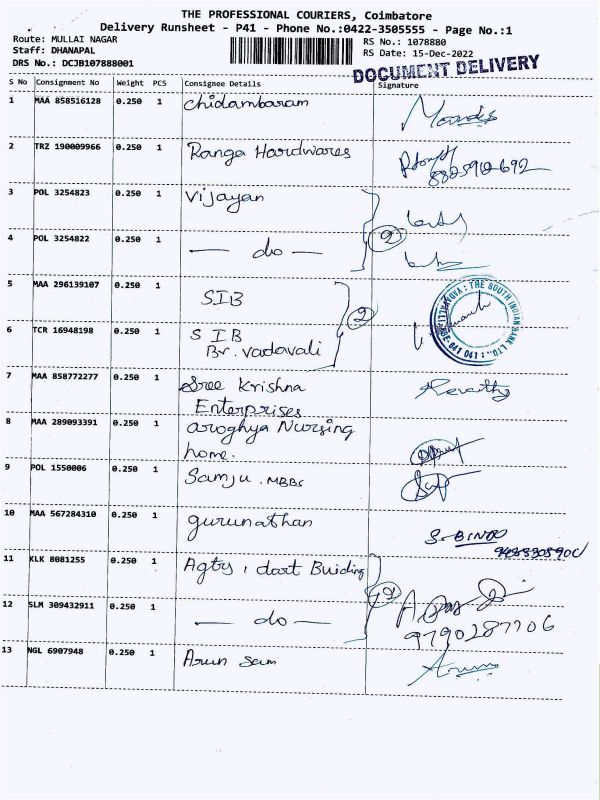 THE PROFESSIONAL COURIERS, Coimbatore
Delivery Runsheet - P41 - Phone No.:0422-3505555 - Page No.:1
Route: MULLAI NAGAR
RS No.: 1078880
Staff: DHANAPAL
RS Date: 15-Dec-2022
DRS No.: DCJB107888001
DOCUMENT DELIVERY
S No Consignment No Weight PCS Consignee Details Signature
1 MAA 858516128 0.250 1 Chidambaram
2 TRZ 190009966 0.250 1 Ranga Hardwares
3 POL 3254823 0.250 1 Vijayan
4 POL 3254822 0.250 1 — do — 2
5 MAA 296139107 0.250 1 SIB
THE SOUTH INDIAN BANK LTD.
6 TCR 16948198 0.250 1 SIB 2
Br. vadavali
7 MAA 858772277 0.250 1 Sree Krishna Revathy
Enterprises
8 MAA 289093391 0.250 1 aroghya Nursing
home.
9 POL 1550006 0.250 1 Samju. MBBS
10 MAA 567284310 0.250 1 gurunathan S. BINDO
11 KLK 8081255 0.250 1 Agtys, dart Buiding
12 SLM 309432911 0.250 1 — do — 2
9790287706
13 NGL 6907948 0.250 1 Arun Sam Arun